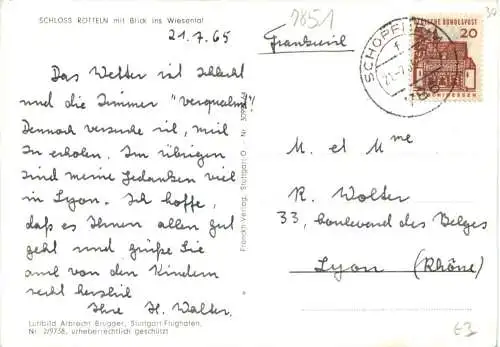 SCHLOSS RÖTTELN mit Blick ins Wiesental
7851
30
21.7.65
(Frankreich)
SCHOPFHEIM
DEUTSCHE BUNDESPOST
20
Das Wetter ist schlecht
und die Zimmer "verqualmt"!
Dennoch versuche ich, mich
zu erholen. Im übrigen
sind meine Gedanken viel
in Lyon. Ich hoffe,
daß es Ihnen allen gut
geht und grüße Sie
auch von den Kindern
recht herzlich
Ihre H. Walter.
Franckh-Verlag, Stuttgart-O Nr.
M. et Mme
R. Wolter
33, boulevard des Belges
Lyon (Rhône)
Luftbild Albrecht Brugger, Stuttgart-Flughafen,
Nr. 2/9738, urheberrechtlich geschützt
€3